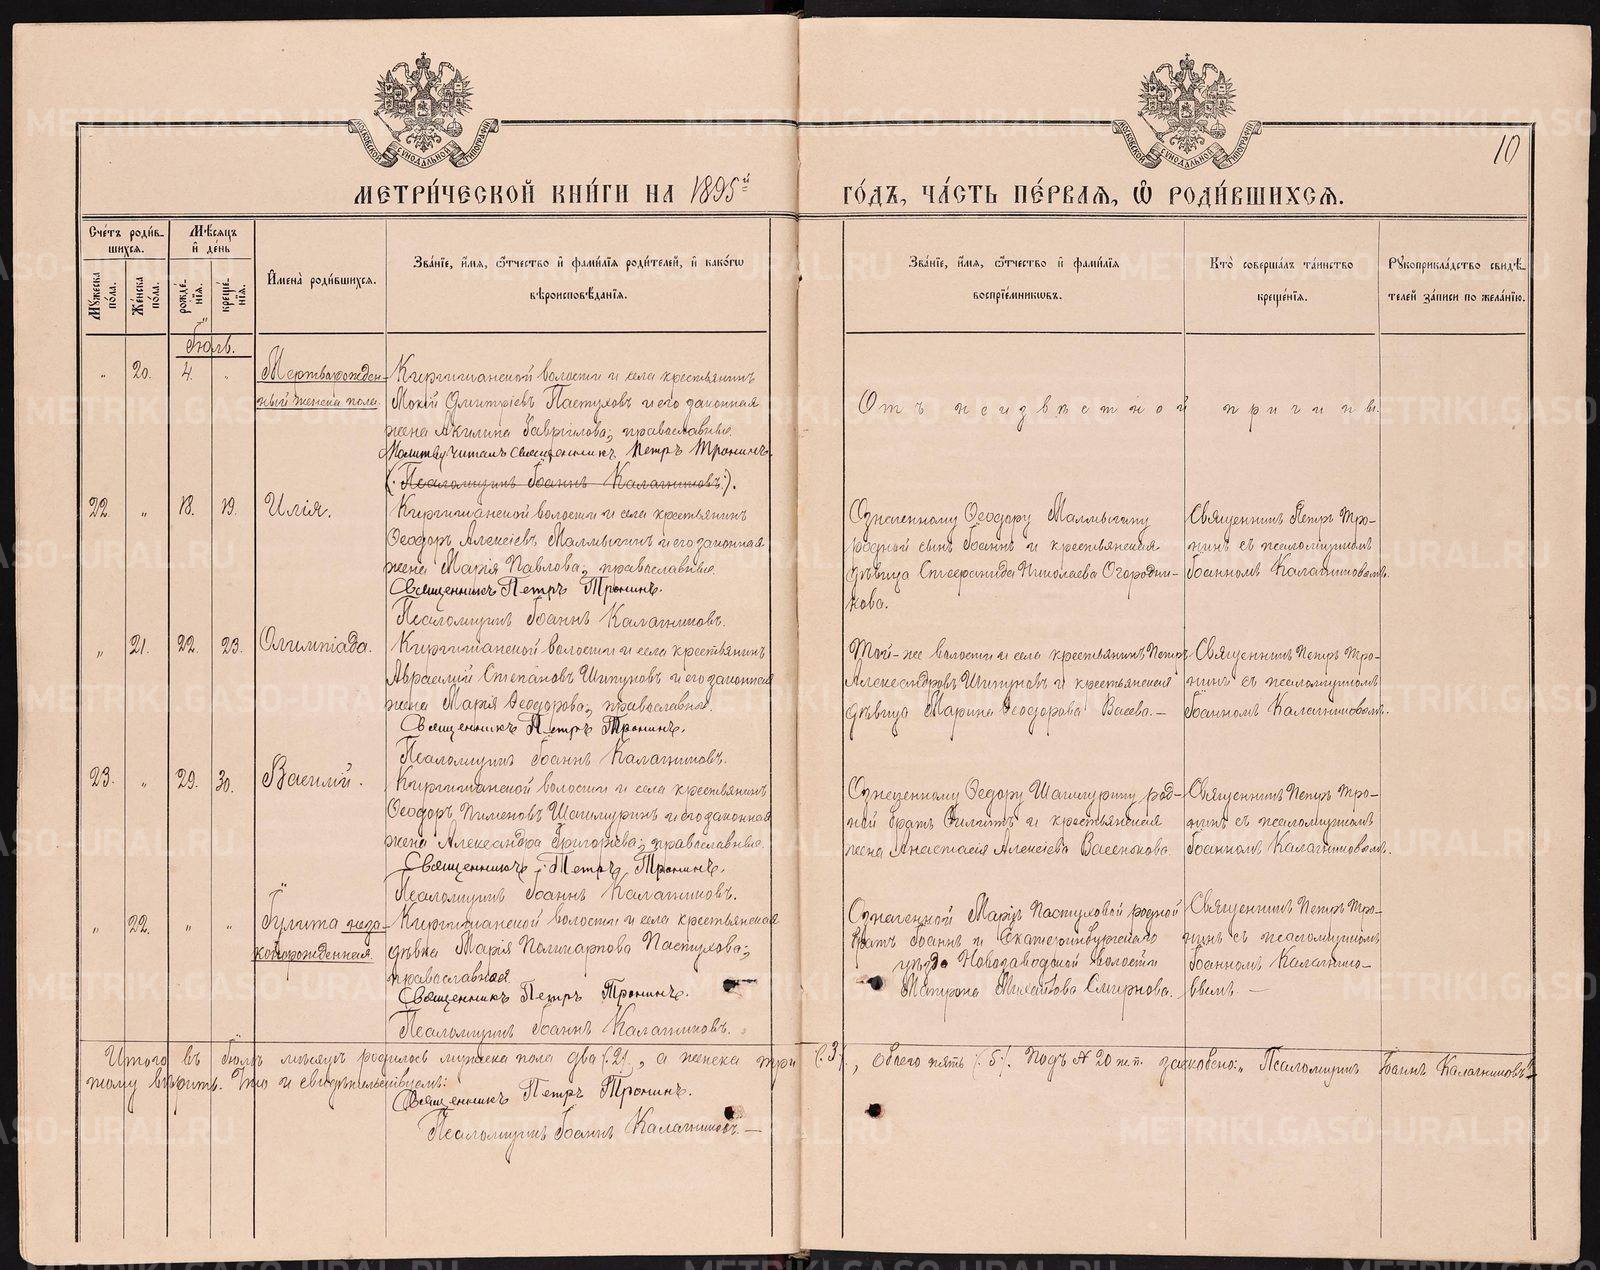 МОСКОВСКОЙ СѴНОДАЛЬНОЙ ТИПОГРАФІИ
МОСКОВСКОЙ СѴНОДАЛЬНОЙ ТИПОГРАФІИ
10
МЕТРИ́ЧЕСКОЙ КНИ́ГИ НА 1895й ГО́ДЪ, ЧА́СТЬ ПЕ́РВАЯ, Ѡ҆ РОДИ́ВШИХСЯ.
Сче́тъ роди́в-
шихся.
Мꙋ́жеска по́ла.
Же́нска по́ла.
Мѣ́сяцъ
и҆ де́нь
рожде́-
нїя.
креще́-
нїя.
И҆мена̀ роди́вшихся.
Зва́нїе, и҆́мя, ѻ҆́тчество и҆ фами́лїя роди́телей, и҆ како́гѡ
вѣроисповѣ́данїя.
Зва́нїе, и҆́мя, ѻ҆́тчество и҆ фами́лїя
воспрїе́мникѡвъ.
Кто̀ соверша́лъ та́инство
креще́нїя.
Рꙋкоприкла́дство свидѣ́-
телей за́писи по жела́нїю.
Іюль.
" 20. 4. "
Мертворожден-
ный женска пола.
Киргишанской волости и села крестьянинъ
Мокій Димитріевъ Пастуховъ и его законная
жена Акилина Гаврілова; православные.
Молитву читалъ священникъ Петръ Тронинъ
(: Псаломщикъ Іоаннъ Калашниковъ:).
Отъ неизвѣстной причины.
22. " 18. 19.
Илія.
Киргишанской волости и села крестьянинъ
Ѳеодоръ Алексіевъ Малмыгинъ и его законная
жена Марія Павлова; православные.
Священникъ Петръ Тронинъ.
Псаломщикъ Іоаннъ Калашниковъ.
Означенному Ѳеодору Малмыгину
родной сынъ Іоаннъ и крестьянская
дѣвица Стефанида Николаева Огородни-
кова.
Священникъ Петръ Тро-
нинъ съ псаломщикомъ
Іоанномъ Калашниковымъ.
" 21. 22. 23.
Олимпіада.
Киргишанской волости и села крестьянинъ
Авраамій Степановъ Шипуновъ и его законная
жена Марія Ѳеодорова; православные.
Священникъ Петръ Тронинъ.
Псаломщикъ Іоаннъ Калашниковъ.
Той-же волости и села крестьянинъ Петръ
Александровъ Шипуновъ и крестьянская
дѣвица Марина Ѳеодорова Васева.—
Священникъ Петръ Тро-
нинъ съ псаломщикомъ
Іоанномъ Калашниковымъ.
23. " 29. 30.
Василій.
Киргишанской волости и села крестьянинъ
Ѳеодоръ Пименовъ Шашмуринъ и его законная
жена Александра Григоріева; православные.
Священникъ Петръ Тронинъ.
Псаломщикъ Іоаннъ Калашниковъ.
Означенному Ѳедору Шашмурину род-
ной братъ Филиппъ и крестьянская
жена Анастасія Алексіева Васенькова.
Священникъ Петръ Тро-
нинъ съ псаломщикомъ
Іоанномъ Калашниковымъ.
" 22. " "
Іулита неза-
коннорожденная.
Киргишанской волости и села крестьянская
дѣвка Марія Поликарпова Пастухова;
православная.
Священникъ Петръ Тронинъ.
Псаломщикъ Іоаннъ Калашниковъ.
Означенной Маріи Пастуховой родной
братъ Іоаннъ и Екатеринбургскаго
уѣзда Новозаводской волости
Матрона Михайлова Смирнова.
Священникъ Петръ Тро-
нинъ съ псаломщикомъ
Іоанномъ Калашнико-
вымъ —
Итого въ Іюлѣ мѣсяцѣ родилось мужска пола два (:2:), а женска три (:3:), обоего пять (:5:). Подъ № 20 ж.п. зачеркнуто: „Псаломщикъ Іоаннъ Калашниковъ"
тому вѣрить. Что и свидѣтельствуемъ:
Священникъ Петръ Тронинъ.
Псаломщикъ Іоаннъ Калашниковъ.—
METRIKI.GASO-URAL.RU